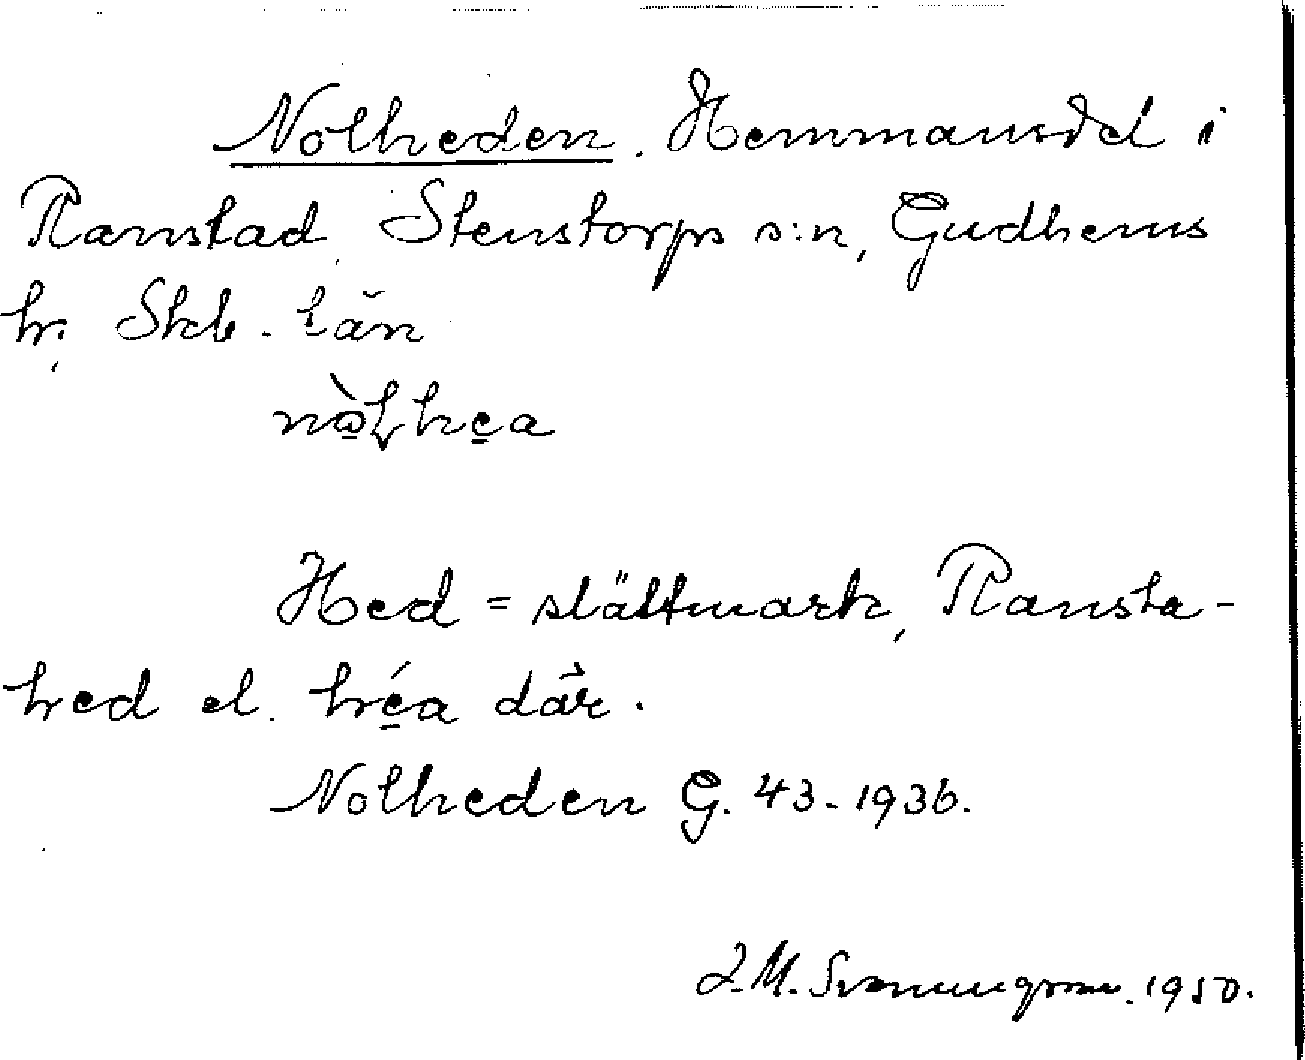 Nolheden. Hemmansdel i
Ranstad, Stenstorps s:n, Gudhems
hr, Skb. län
nòlhea
Hed = slättmark, Ransta-
hed el. héa där.
Nolheden G. 43 - 1936.
1950.